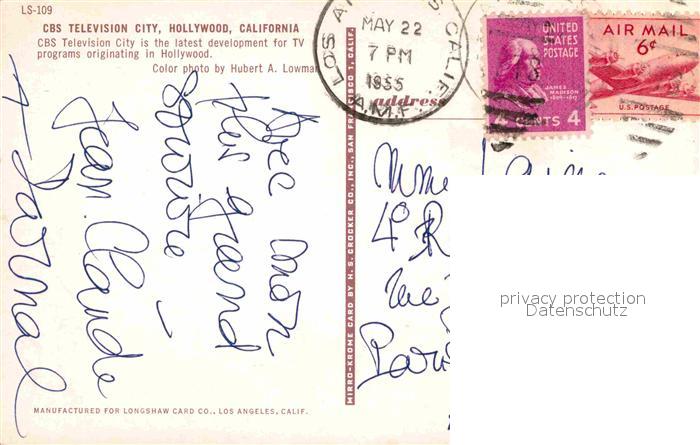 LS-109
CBS TELEVISION CITY, HOLLYWOOD, CALIFORNIA
CBS Television City is the latest development for TV
programs originating in Hollywood.
Color photo by Hubert A. Lowman
avec mon
plus grand
sourire
Jean. Claude
MANUFACTURED FOR LONGSHAW CARD CO., LOS ANGELES, CALIF.
MIRRO-KROME CARD BY H. S. CROCKER CO., INC., SAN FRANCISCO 1, CALIF.
LOS ANGELES CALIF.
MAY 22
7 PM
1955
A.M.F.
address
UNITED
STATES
POSTAGE
JAMES
MADISON
1809-1817
4 CENTS 4
AIR MAIL
6¢
U.S. POSTAGE
Mme
4 R
Paris
privacy protection
Datenschutz